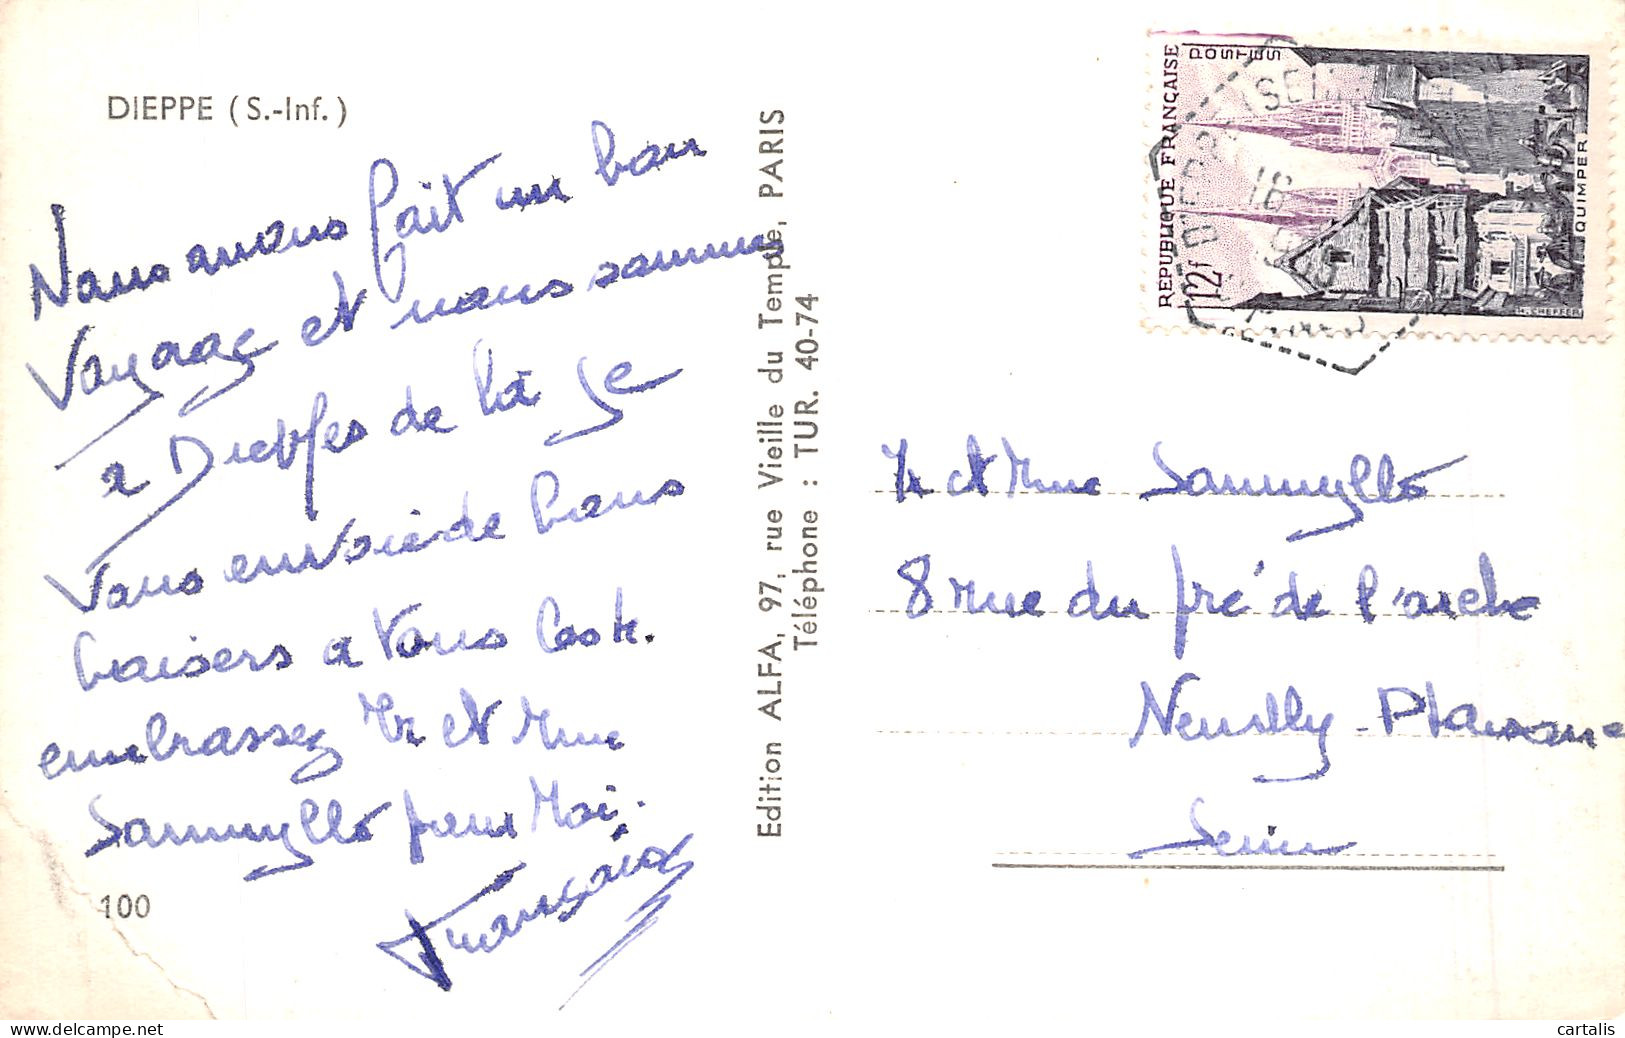 DIEPPE (S.-Inf.)
Nous avons fait un bon
Voyage et nous sommes
a Dieppe de là je
Vous envoie de bons
baisers a Vous
embrassez Mr et Mme
pour Moi.
100
Edition ALFA, 97, rue Vieille du Temple, PARIS
Téléphone : TUR. 40-74
REPUBLIQUE FRANÇAISE
POSTES
12f
QUIMPER
H. CHEFFER
DIEPPE
16
Mr et Mme
8 rue du Pré de l'arche
Neuilly-Plaisance
Seine
cartalis